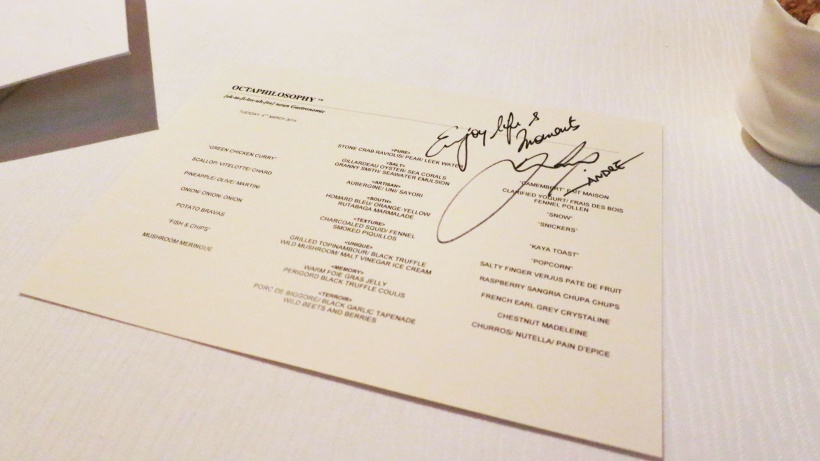 OCTAPHILOSOPHY™
TUESDAY, 4TH MARCH 2014
Enjoy life &
moments
ANDRÉ
"GREEN CHICKEN CURRY"
SCALLOP/ VITELOTTE/ CHARD
PINEAPPLE/ OLIVE/ MARTINI
ONION/ ONION/ ONION
POTATO BRAVAS
"FISH & CHIPS"
MUSHROOM MERINGUE
<PURE>
STONE CRAB RAVIOLIS/ PEAR/ LEEK WATER
<SALT>
GILLARDEAU OYSTER/ SEA CORALS
GRANNY SMITH/ SEAWATER EMULSION
<ARTISAN>
AUBERGINE/ UNI/ SAVORI
<SOUTH>
HOMARD BLEU/ ORANGE-YELLOW
RUTABAGA MARMALADE
<TEXTURE>
CHARCOALED SQUID/ FENNEL
SMOKED PIQUILLOS
<UNIQUE>
GRILLED TOPINAMBOUR/ BLACK TRUFFLE
WILD MUSHROOM/ MALT VINEGAR ICE CREAM
<MEMORY>
WARM FOIE GRAS JELLY
PERIGORD BLACK TRUFFLE COULIS
<TERROIR>
PORC DE BIGGORE/ BLACK GARLIC TAPENADE
WILD BEETS AND BERRIES
"CAMEMBERT" FAIT MAISON
CLARIFIED YOGURT/ FRAIS DES BOIS
FENNEL POLLEN
"SNOW"
"SNICKERS"
"KAYA TOAST"
"POPCORN"
SALTY FINGER VERJUS PATE DE FRUIT
RASPBERRY SANGRIA CHUPA CHUPS
FRENCH EARL GREY CRYSTALINE
CHESTNUT MADELEINE
CHURROS/ NUTELLA/ PAIN D'EPICE